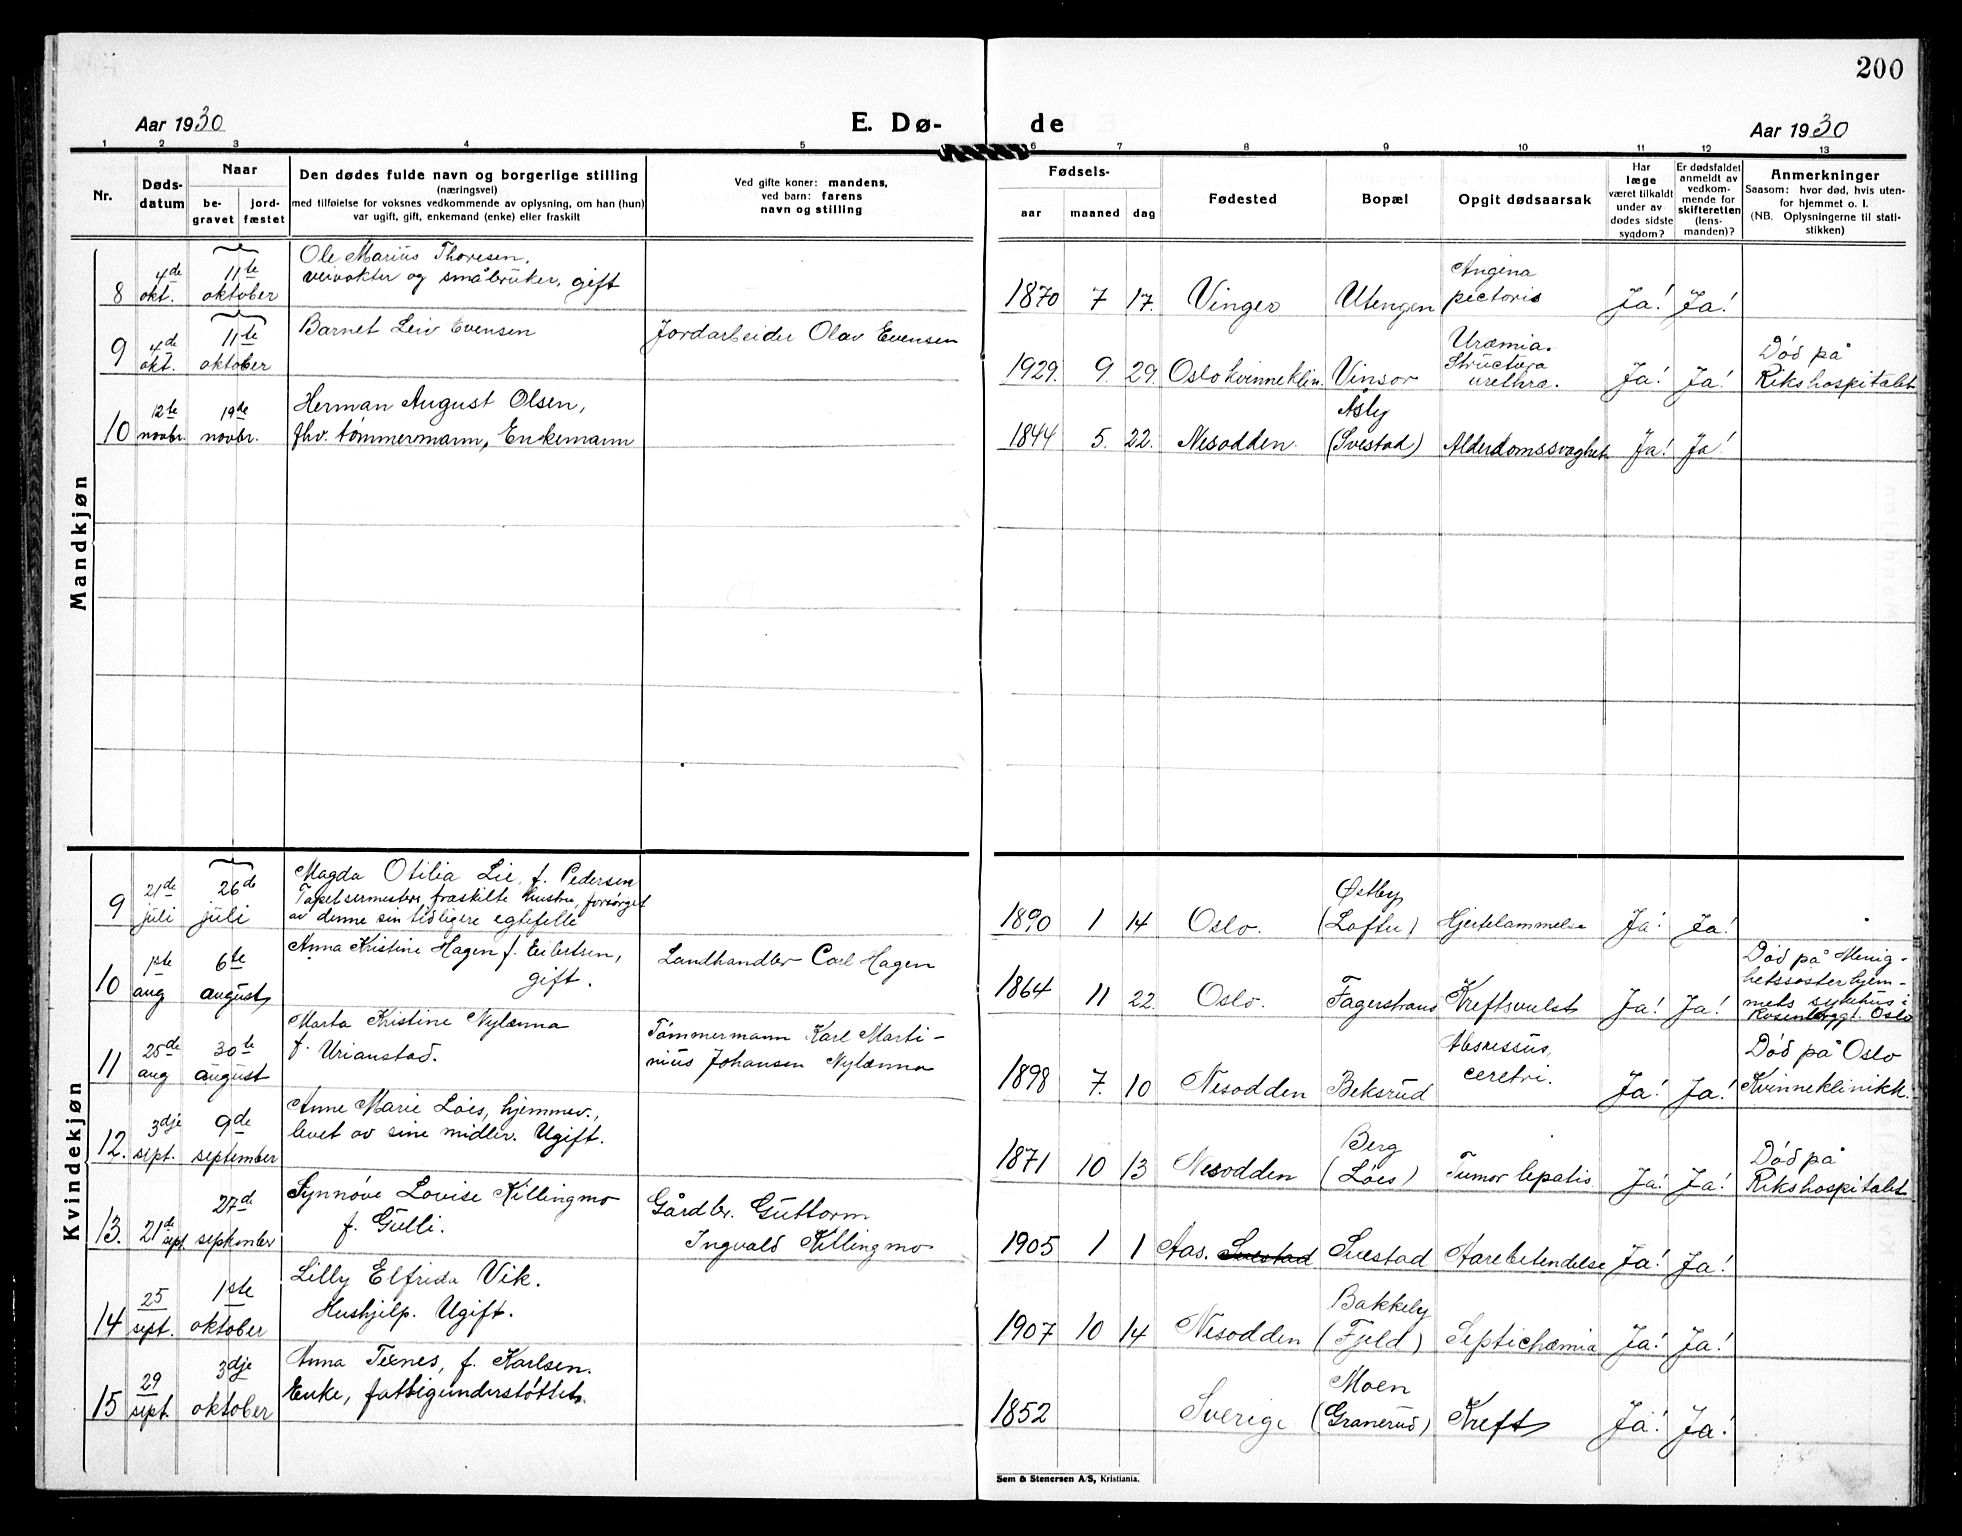 200
Aar 1930
E. Dø-
de
Aar 1930
1 2 3 4 5 6 7 8 9 10 11 12 13
Nr.
Døds-
datum
Naar
be-
gravet
jord-
fæstet
Den dødes fulde navn og borgerlige stilling
(næringsvei)
med tilføielse for voksnes vedkommende av oplysning, om han (hun)
var ugift, gift, enkemand (enke) eller fraskilt
Ved gifte koner: mandens,
ved barn: farens
navn og stilling
Fødsels-
aar maaned dag
Fødested
Bopæl
Opgit dødsaarsak
Har
læge
været tilkaldt
under av-
dødes sidste
sygdom?
Er dødsfaldet
anmeldt av
vedkom-
mende for
skifteretten
(lens-
manden)?
Anmerkninger
Saasom: hvor død, hvis uten-
for hjemmet o. l.
(NB. Oplysningerne til stati-
stikken)
Mandkjøn
8 4de okt. 11te oktober
Ole Marius Thoresen,
veivokter og småbruker, gift
1870 7 17. Vinger Utengen
Angina
pectoris
Ja! Ja!
9 4de okt. 11te oktober
Barnet Leiv Evensen
Jordarbeider Olav Evensen
1929. 9. 29. Oslo kvinneklin. Vinsor
Uræmia.
Structura
urethra.
Ja! Ja!
Död på
Rikshospitalet
10 12te novbr. 19de novbr.
Herman August Olsen,
fhv. tømmermann, Enkemann
1844 5. 22. Nesodden.
Åsly
(Svestad)
Alderdomssvaghet
Ja! Ja!
Kvindekjøn
9 21de juli 26de juli
Magda Otilia Lie, f. Pedersen
Tapetsermesters fraskilte hustru, forsørget
av denne sin tidligere egtefelle
1890 1 14 Oslo.
Østby
(Lofter)
Hjertelammelse
Ja! Ja!
10 1ste aug 6te august
Anna Kristine Hagen f. Eilertsen,
gift.
Landhandler Carl Hagen
1864 11 22. Oslo. Fagerstrand Kreftsvulst
Ja! Ja!
Död på Menig-
hetssøsterhjem-
mets sykehus i
Rosenborggt. Oslo
11 25de aug 30te august
Marta Kristine Nylænna
f. Urianstad.
Tömmermann Karl Marti-
nius Johansen Nylænna
1898 7. 10 Nesodden Beksrud
Absressus,
ceretri.
Ja! Ja!
Död på Oslo
Kvinneklinikk.
12. 3dje sept. 9de september
Anne Marie Löes, hjemmev.,
levet av sine midler. Ugift.
1871 10 13 Nesodden
Berg
(Löes)
Tumor hepatis
Ja! Ja!
Död på
Rikshospitalet
13. 21de sept. 27d september
Synnöve Lovise Killingmo
f. Gulli.
Gårdbr. Guttorm
Ingvald Killingmo
1905 1 1 Aas. Svestad Svestad Aarebetendelse
Ja! Ja!
14 25 sept. 1ste oktober
Lilly Elfrida Vik.
Hushjelp. Ugift.
1907 10 14 Nesodden
Bakkely
(Fjeld)
Septichæmia
Ja! Ja!
15 29 sept. 3dje oktober
Anna Texnes, f. Karlsen.
Enke, fattigunderstöttet.
1852 Sverige
Moen
(Granerud)
Kreft
Ja! Ja!
Sem & Stenersen A/S, Kristiania.